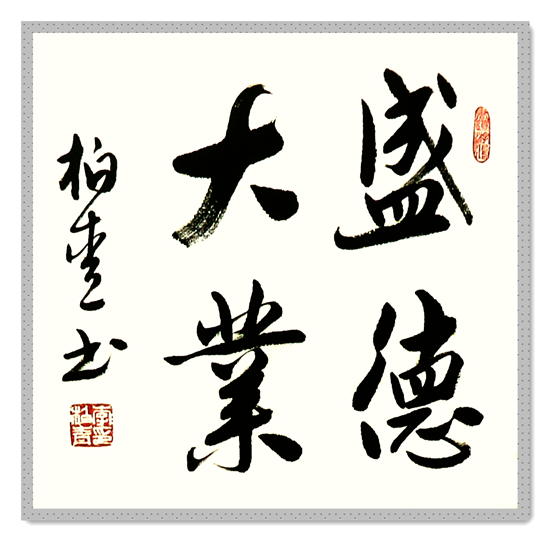 盛德
大業
柏寿书